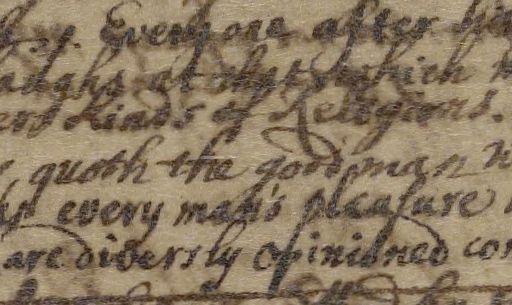 Everyone after his
laughs at that which
Kinds of Religions.
quoth the good man
every man's pleasure
are diversly opinioned con